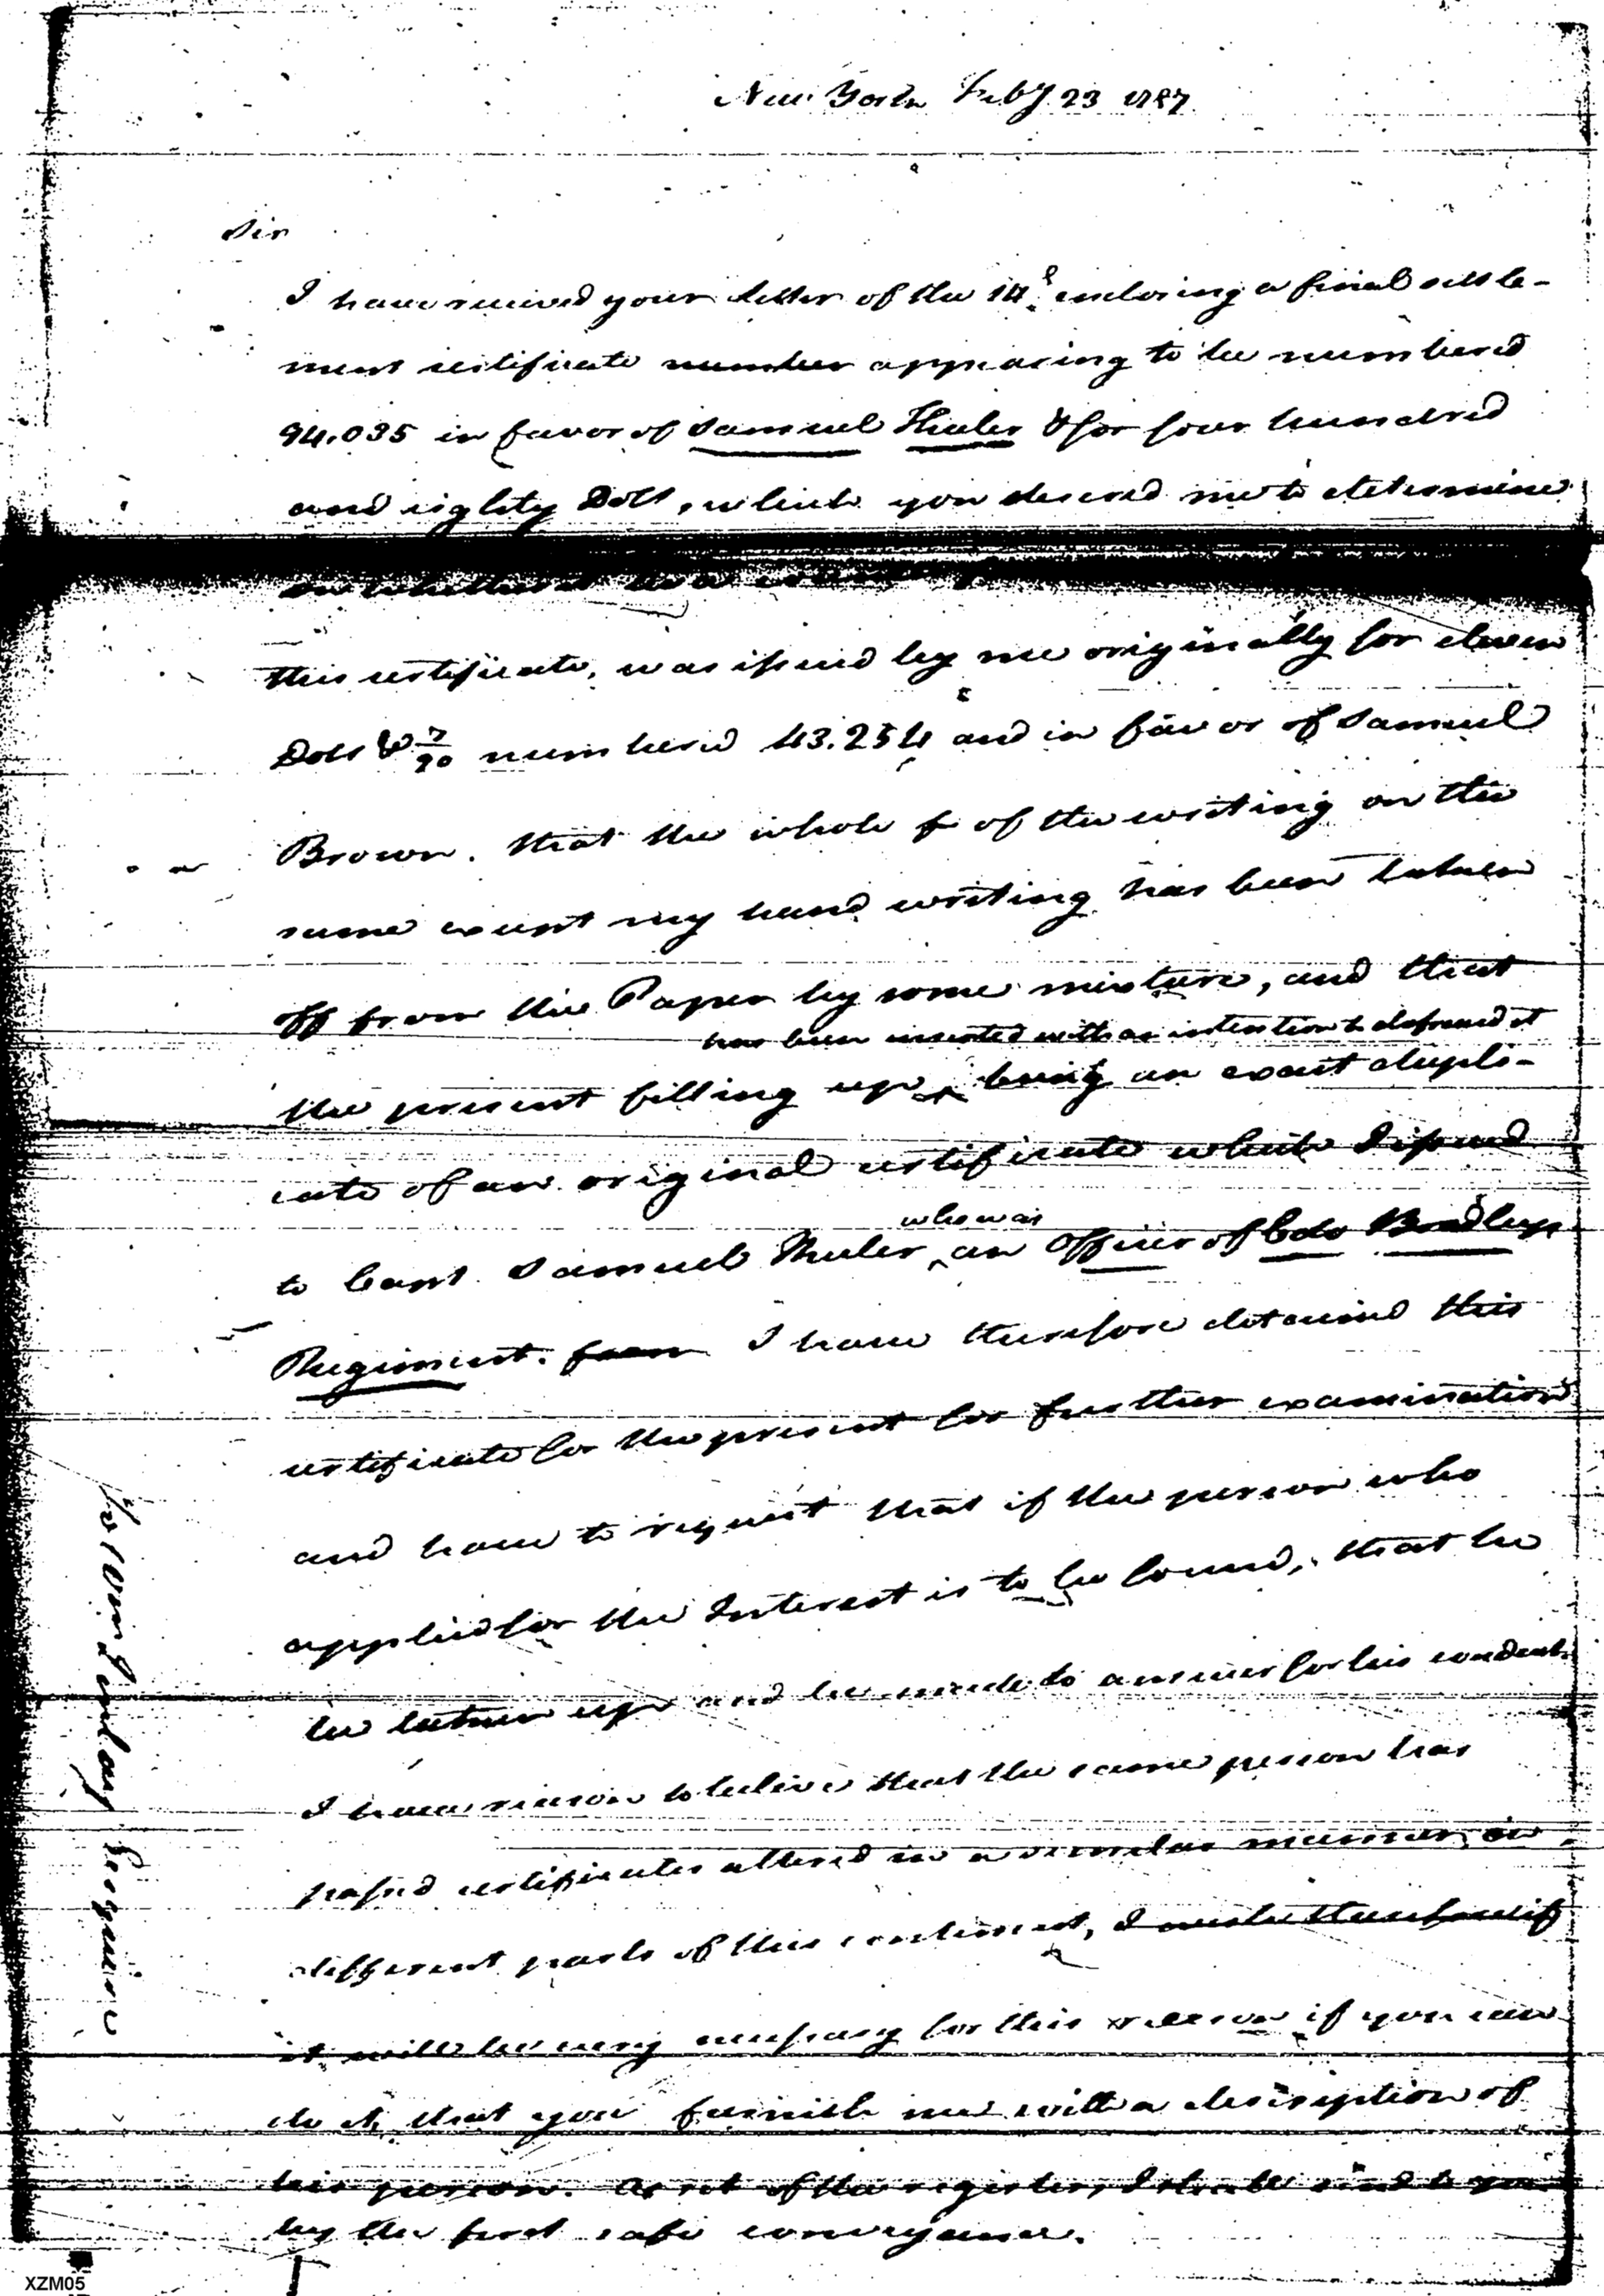 New York Feby 23 1787
Sir
I have received your letter of the 14th enclosing a final settle-
ment certificate number appearing to be numbered
94.035 in favor of Samuel & for four hundred
and eighty Dolls, which you desired me to determine
on whether
this certificate, was issued by me originally for eleven
Dolls & 7/90 numbered 43.254 and in favor of Samuel
Brown. that the whole of the writing on the
same except my hand writing has been taken
off from the Paper by some mixture, and that
has been inserted with an intention to defraud it
the present filling up ‸ being an exact dupli-
cate of an original certificate which I issued
who was
to Capt. Samuel ‸ an officer of Colo Bradleys
Regiment. I have therefore detained this
certificate for the present for further examination
and have to request that if the person who
applied for the Interest is to be found, that he
be taken up and be made to answer for his conduct.
I have reason to believe that the same person has
passed certificates altered in a similar manner in
different parts of this continent, I
it will be very necessary for this reason if you can
do it, that you furnish me with a description of
his person. A set of the registers, I shall send to you
by the first safe conveyance.
Wm Imlay Esquire
XZM05